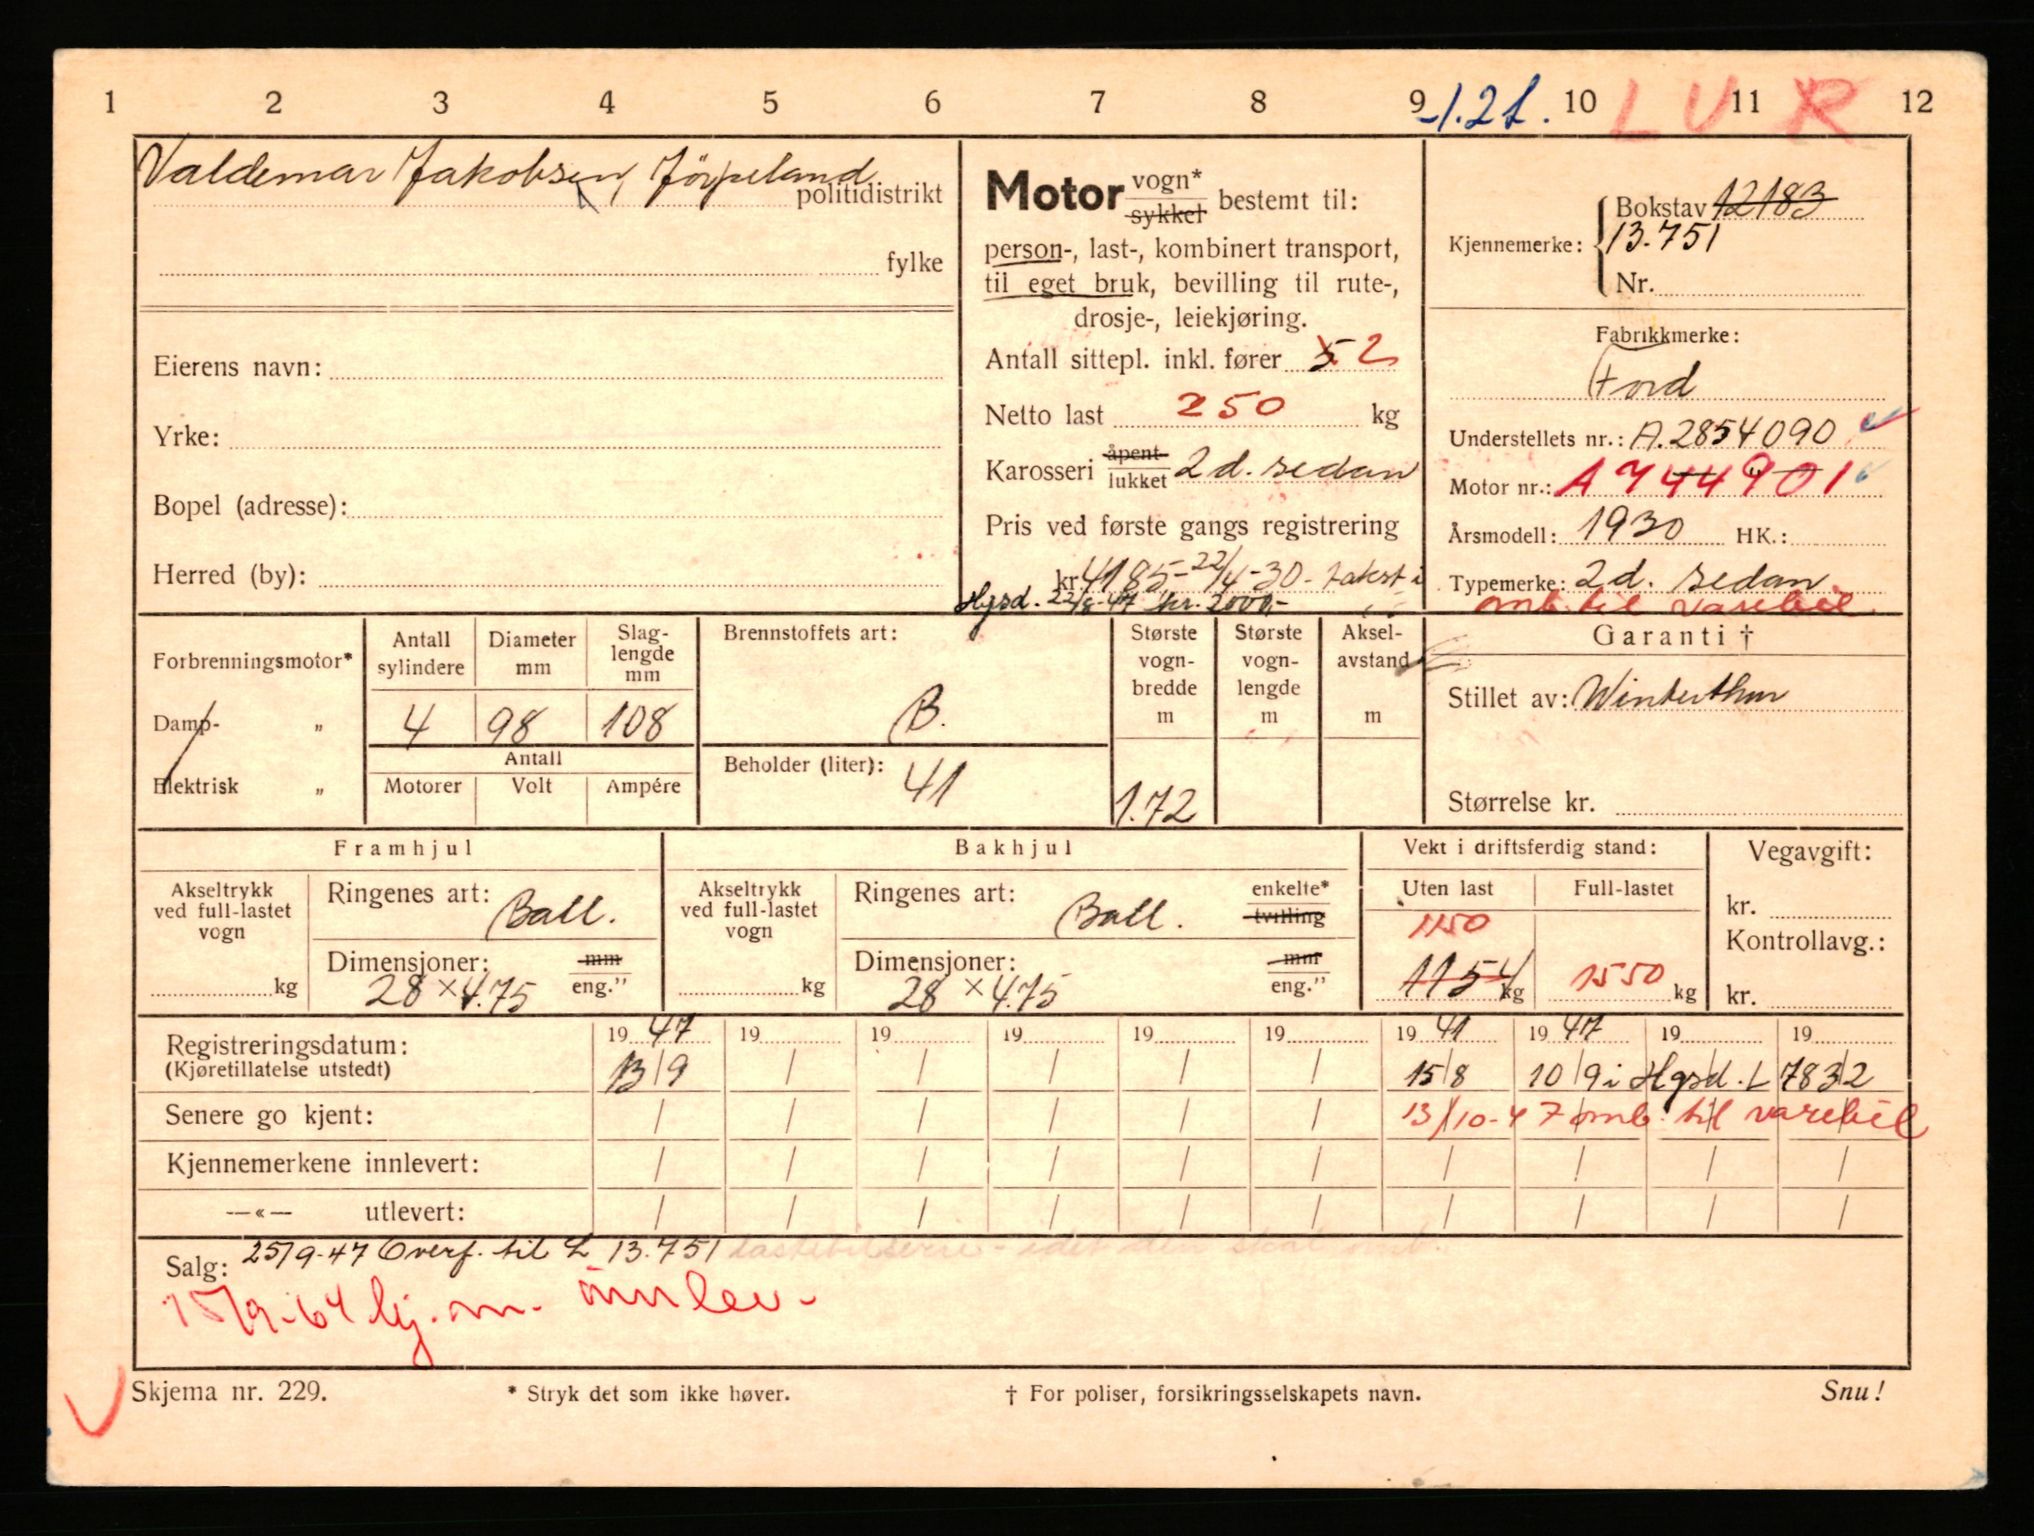 1 2 3 4 5 6 7 8 9 -1.2t. 10 L V 11 R 12
Valdemar Jakobsen, Jørpeland politidistrikt
fylke
Eierens navn:
Yrke:
Bopel (adresse):
Herred (by):
Motor vogn* sykkel bestemt til:
person-, last-, kombinert transport,
til eget bruk, bevilling til rute-,
drosje-, leiekjøring.
Antall sittepl. inkl. fører 5 2
Netto last 250 kg
Karosseri åpent lukket 2 d. sedan
Pris ved første gangs registrering
kr 4185- 22/4-30- takst i
Hgsd. 22/8-47 kr. 2000,-
Bokstav 12183
Kjennemerke: 13.751
Nr.
Fabrikkmerke:
Ford
Understellets nr.: A.2854090
Motor nr.: A 744901
Årsmodell: 1930 HK.:
Typemerke: 2 d. sedan
omb. til varebil
Forbrenningsmotor*
Damp- "
Elektrisk "
Antall sylindere
Diameter mm
Slag-lengde mm
4 98 108
Antall
Motorer Volt Ampére
Brennstoffets art:
B.
Beholder (liter): 41
Største vogn-bredde m
1.72
Største vogn-lengde m
Aksel-avstand m
Garanti †
Stillet av: Winterthur
Størrelse kr.
Framhjul
Akseltrykk ved full-lastet vogn
kg
Ringenes art: Ball.
Dimensjoner: mm
28 × 4.75 eng."
Bakhjul
Akseltrykk ved full-lastet vogn
kg
Ringenes art: Ball. enkelte* tvilling
Dimensjoner: mm
28 × 4.75 eng."
Vekt i driftsferdig stand:
Uten last Full-lastet
1150
1154 kg 1550 kg
Vegavgift:
kr.
Kontrollavg.:
kr.
Registreringsdatum: 19 47 19 19 19 19 19 19 41 19 47 19 19
(Kjøretillatelse utstedt) 13/9 / / / / / 15/8 10/9 i Hgsd. L 7832
Senere go kjent: / / / / / / 13/10-47 omb. til varebil
Kjennemerkene innlevert: / / / / / / / / / /
—«— utlevert: / / / / / / / / / /
Salg: 25/9-47 Overf. til L 13.751 lastebilserie - idet den skal omb.
15/9-64 kj.m. innlev-
Skjema nr. 229. * Stryk det som ikke høver. † For poliser, forsikringsselskapets navn. Snu!